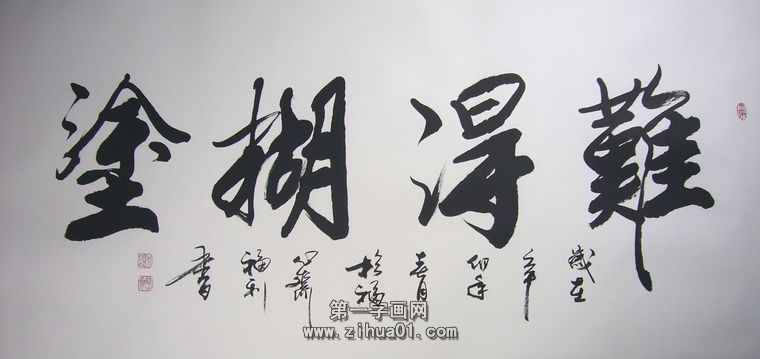 難得糊塗
歲在辛卯年春月於福心齋福利書
第一字画网
www.zihua01.com